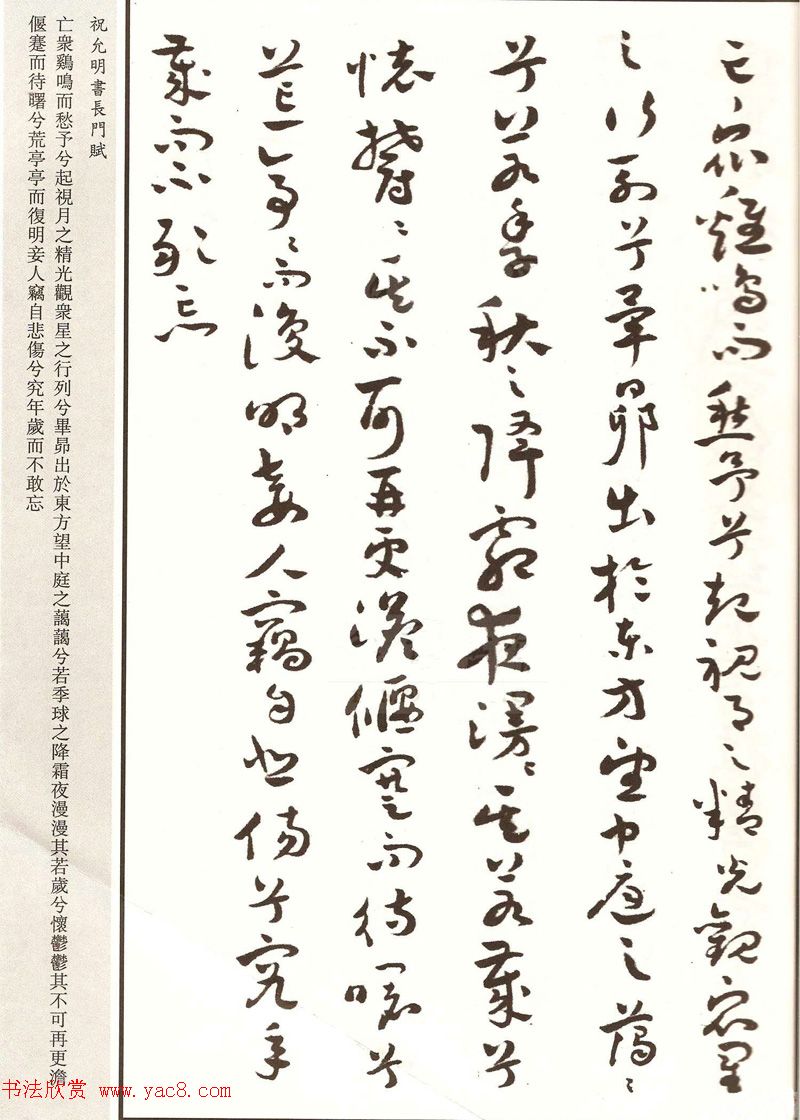 亡衆雞鳴而愁予兮起視月之精光觀衆星
之行列兮畢昴出於東方望中庭之藹藹
兮若季秋之降霜夜漫漫其若歲兮
懷鬱鬱其不可再更澹偃蹇而待曙兮
荒亭亭而復明妾人竊自悲傷兮究年
歲而不敢忘
祝允明書長門賦
亡衆鷄鳴而愁予兮起視月之精光觀衆星之行列兮畢昴出於東方望中庭之藹藹兮若季球之降霜夜漫漫其若歲兮懷鬱鬱其不可再更澹
偃蹇而待曙兮荒亭亭而復明妾人竊自悲傷兮究年歲而不敢忘
书法欣赏 www.yac8.com